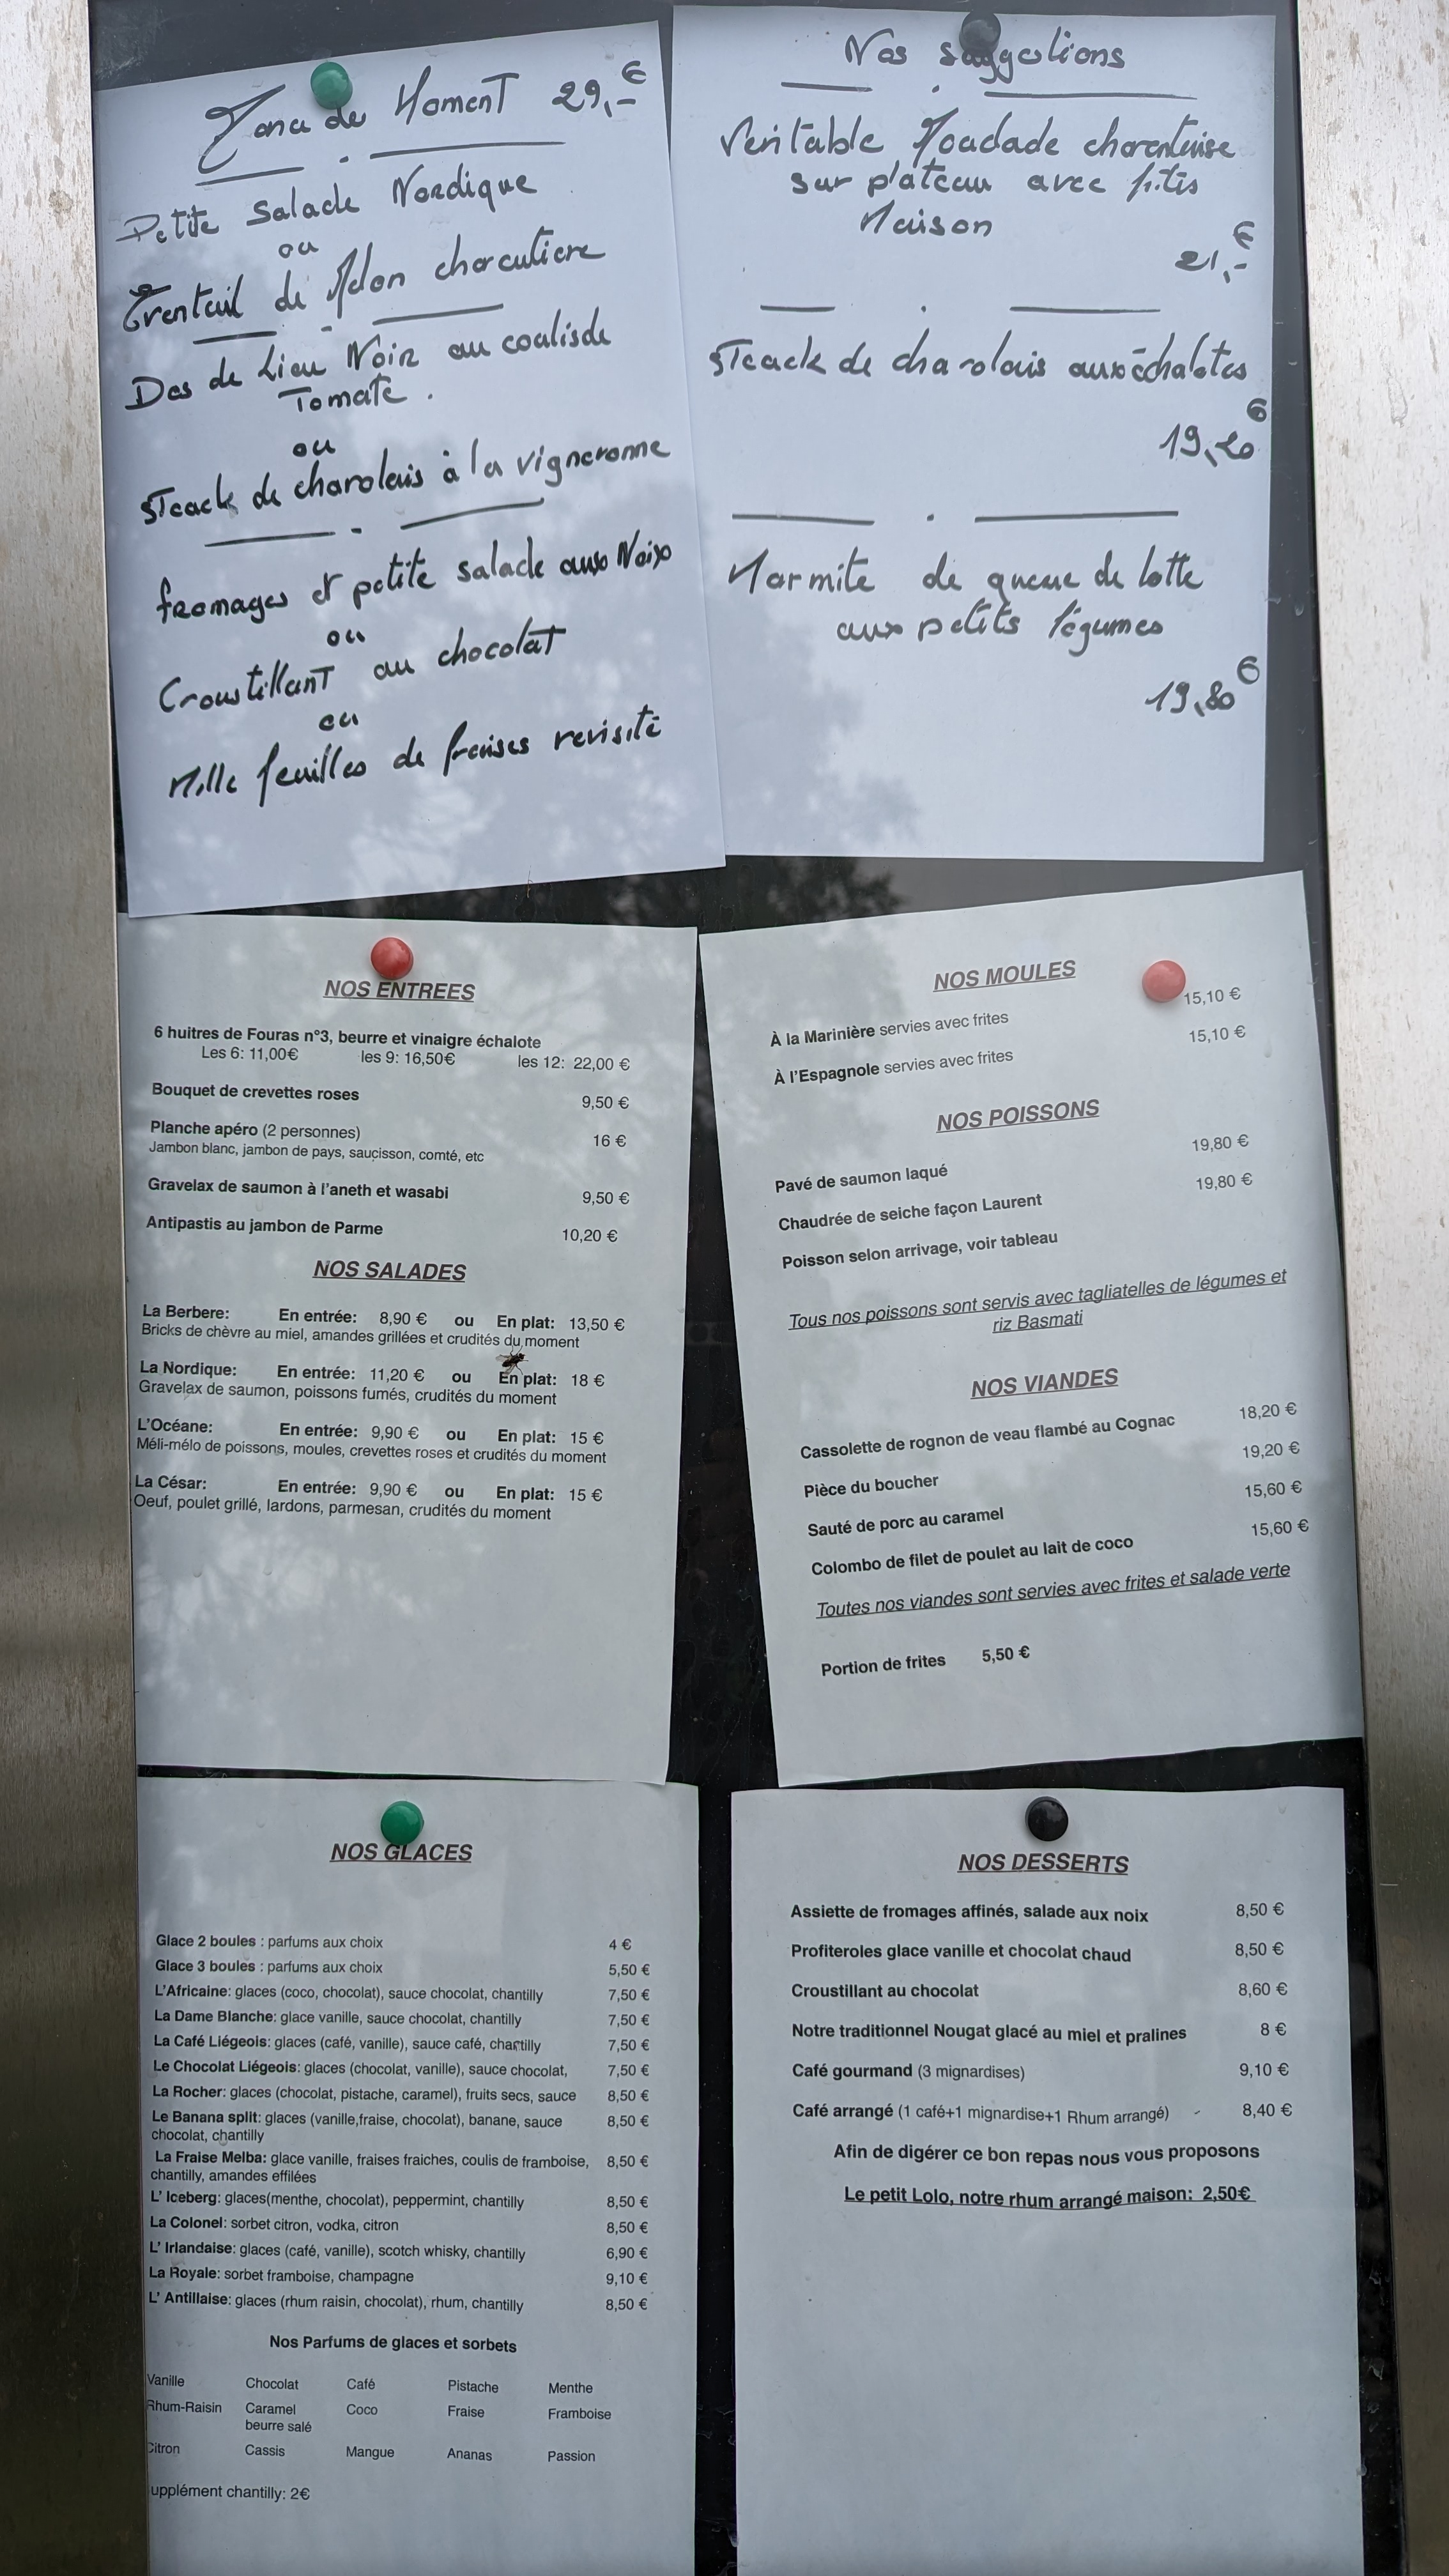 Menu du Moment 29,-€
Petite Salade Nordique
ou
Eventail de Melon charcutiere
Dos de Lieu Noir au coulis de
Tomate.
ou
Steack de charolais à la vigneronne
fromages et petite salade aux Noix
ou
Croustillant au chocolat
ou
Mille feuilles de fraises revisité
Nos suggestions
Veritable Mouclade charentaise
sur plateau avec frites
Maison
21,-€
Steack de charolais aux échalotes
19,20€
Marmite de queue de lotte
aux petits légumes
19,80€
NOS ENTREES
6 huitres de Fouras n°3, beurre et vinaigre échalote
Les 6: 11,00€ les 9: 16,50€ les 12: 22,00 €
Bouquet de crevettes roses 9,50 €
Planche apéro (2 personnes) 16 €
Jambon blanc, jambon de pays, saucisson, comté, etc
Gravelax de saumon à l'aneth et wasabi 9,50 €
Antipastis au jambon de Parme 10,20 €
NOS SALADES
La Berbere: En entrée: 8,90 € ou En plat: 13,50 €
Bricks de chèvre au miel, amandes grillées et crudités du moment
La Nordique: En entrée: 11,20 € ou En plat: 18 €
Gravelax de saumon, poissons fumés, crudités du moment
L'Océane: En entrée: 9,90 € ou En plat: 15 €
Méli-mélo de poissons, moules, crevettes roses et crudités du moment
La César: En entrée: 9,90 € ou En plat: 15 €
Oeuf, poulet grillé, lardons, parmesan, crudités du moment
NOS MOULES
À la Marinière servies avec frites 15,10 €
À l'Espagnole servies avec frites 15,10 €
NOS POISSONS
Pavé de saumon laqué 19,80 €
Chaudrée de seiche façon Laurent 19,80 €
Poisson selon arrivage, voir tableau
Tous nos poissons sont servis avec tagliatelles de légumes et
riz Basmati
NOS VIANDES
Cassolette de rognon de veau flambé au Cognac 18,20 €
Pièce du boucher 19,20 €
Sauté de porc au caramel 15,60 €
Colombo de filet de poulet au lait de coco 15,60 €
Toutes nos viandes sont servies avec frites et salade verte
Portion de frites 5,50 €
NOS GLACES
Glace 2 boules : parfums aux choix 4 €
Glace 3 boules : parfums aux choix 5,50 €
L'Africaine: glaces (coco, chocolat), sauce chocolat, chantilly 7,50 €
La Dame Blanche: glace vanille, sauce chocolat, chantilly 7,50 €
La Café Liégeois: glaces (café, vanille), sauce café, chantilly 7,50 €
Le Chocolat Liégeois: glaces (chocolat, vanille), sauce chocolat, 7,50 €
La Rocher: glaces (chocolat, pistache, caramel), fruits secs, sauce 8,50 €
Le Banana split: glaces (vanille,fraise, chocolat), banane, sauce 8,50 €
chocolat, chantilly
La Fraise Melba: glace vanille, fraises fraiches, coulis de framboise, 8,50 €
chantilly, amandes effilées
L' Iceberg: glaces(menthe, chocolat), peppermint, chantilly 8,50 €
La Colonel: sorbet citron, vodka, citron 8,50 €
L' Irlandaise: glaces (café, vanille), scotch whisky, chantilly 6,90 €
La Royale: sorbet framboise, champagne 9,10 €
L' Antillaise: glaces (rhum raisin, chocolat), rhum, chantilly 8,50 €
Nos Parfums de glaces et sorbets
Vanille Chocolat Café Pistache Menthe
Rhum-Raisin Caramel Coco Fraise Framboise
beurre salé
Citron Cassis Mangue Ananas Passion
upplément chantilly: 2€
NOS DESSERTS
Assiette de fromages affinés, salade aux noix 8,50 €
Profiteroles glace vanille et chocolat chaud 8,50 €
Croustillant au chocolat 8,60 €
Notre traditionnel Nougat glacé au miel et pralines 8 €
Café gourmand (3 mignardises) 9,10 €
Café arrangé (1 café+1 mignardise+1 Rhum arrangé) - 8,40 €
Afin de digérer ce bon repas nous vous proposons
Le petit Lolo, notre rhum arrangé maison: 2,50€